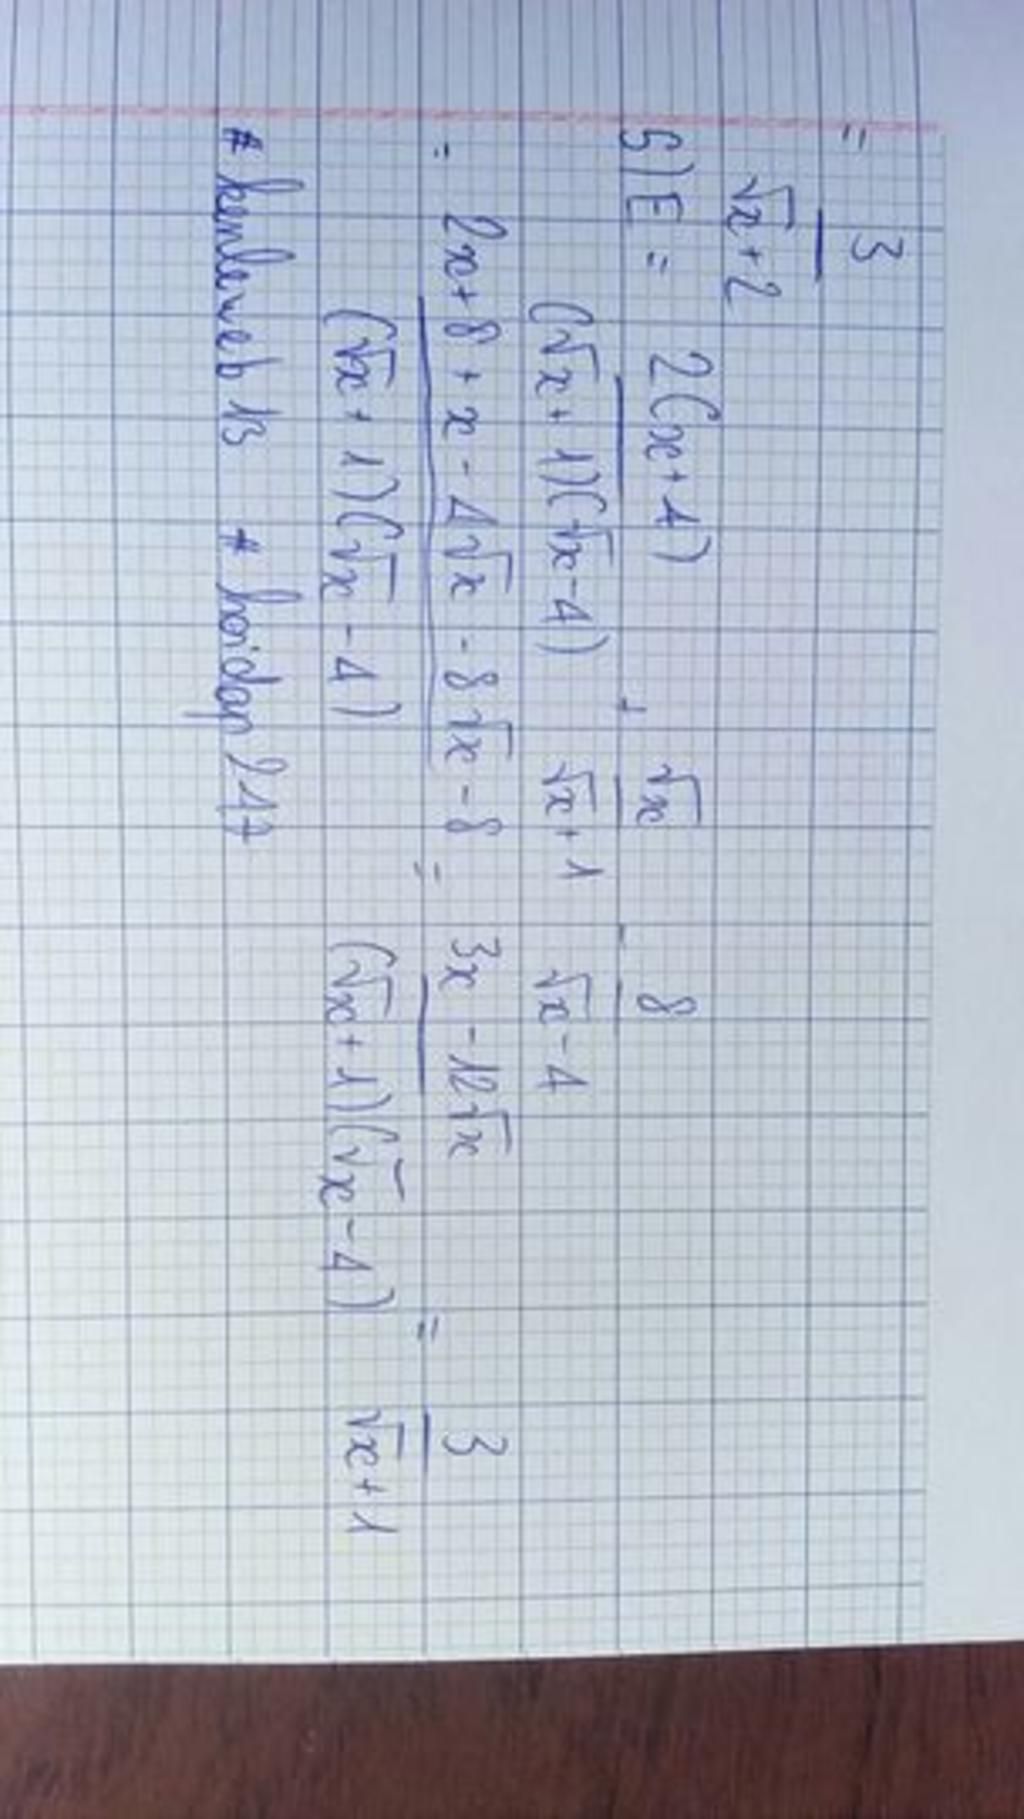 = 3/(√x+2)
5) E = 2(x+4)/((√x+1)(√x-4)) + √x/(√x+1) - 8/(√x-4)
= (2x+8+x-4√x-8√x-8)/((√x+1)(√x-4)) = (3x-12√x)/((√x+1)(√x-4)) = 3/(√x+1)
# hoidap247